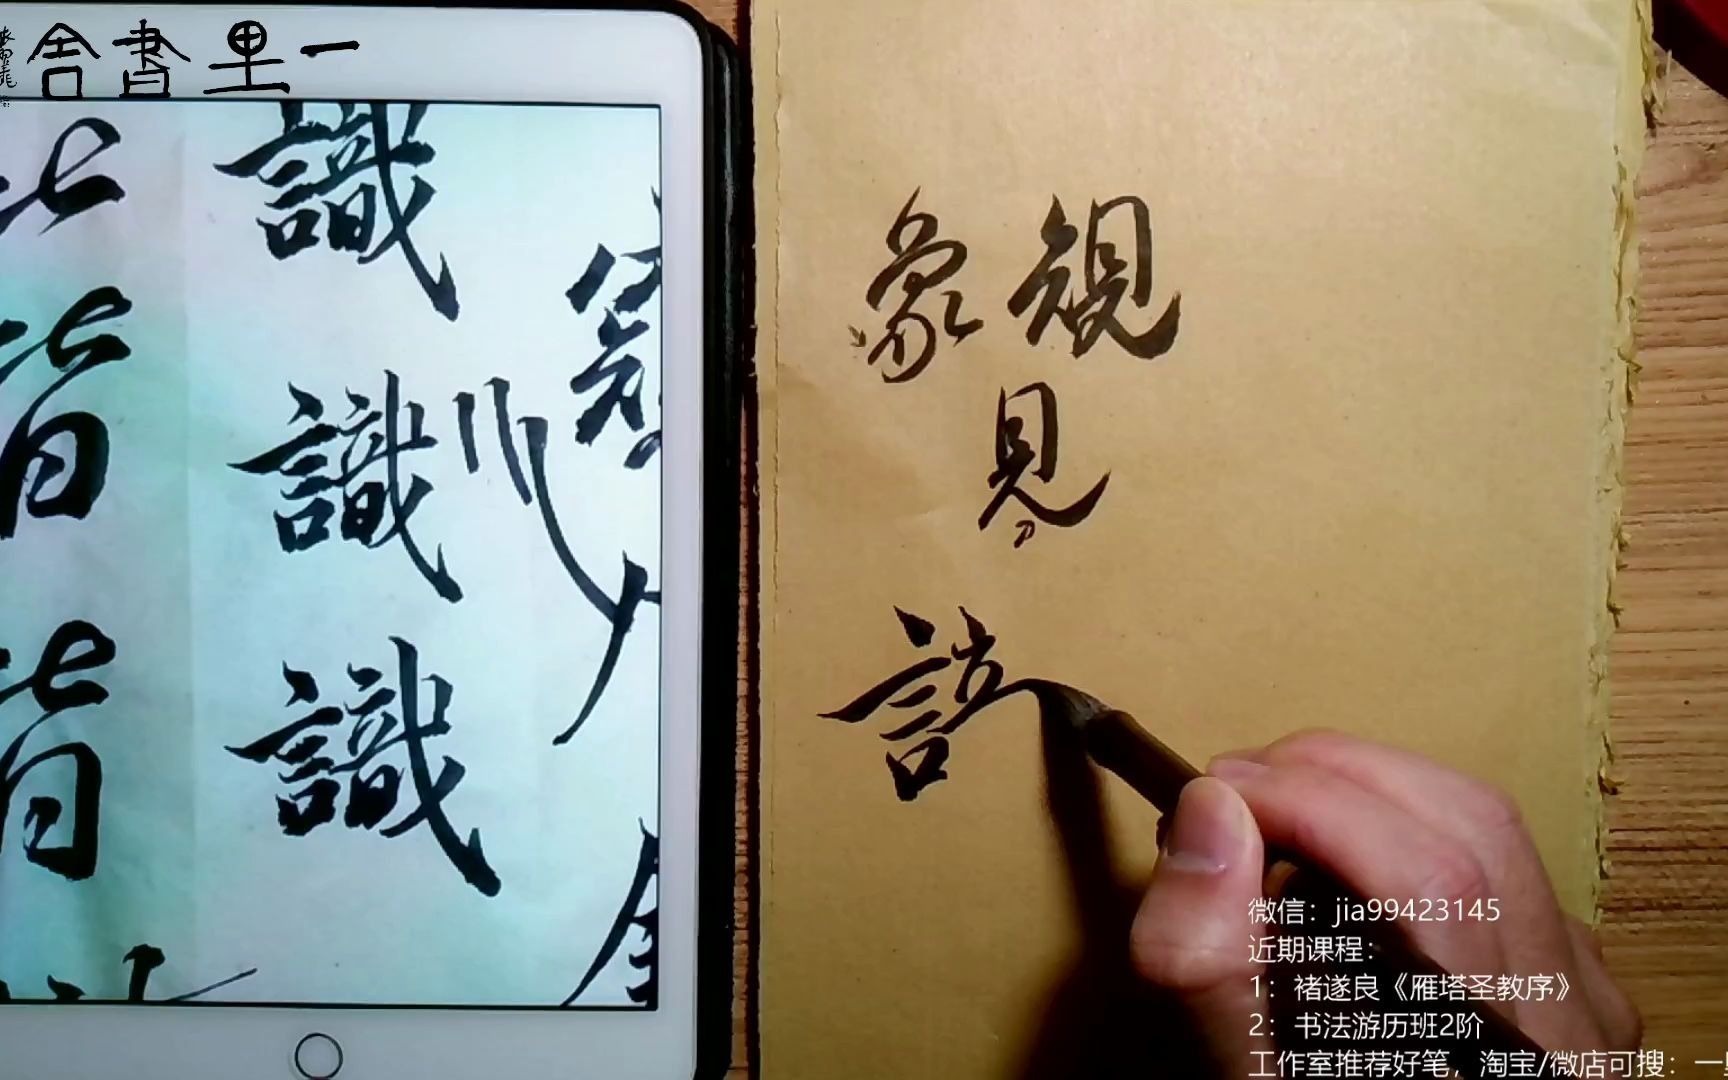 一里書舍
識
識
識
皆
皆
象 規
見
微信：jia99423145
近期课程：
1：褚遂良《雁塔圣教序》
2：书法游历班2阶
工作室推荐好笔，淘宝/微店可搜：一